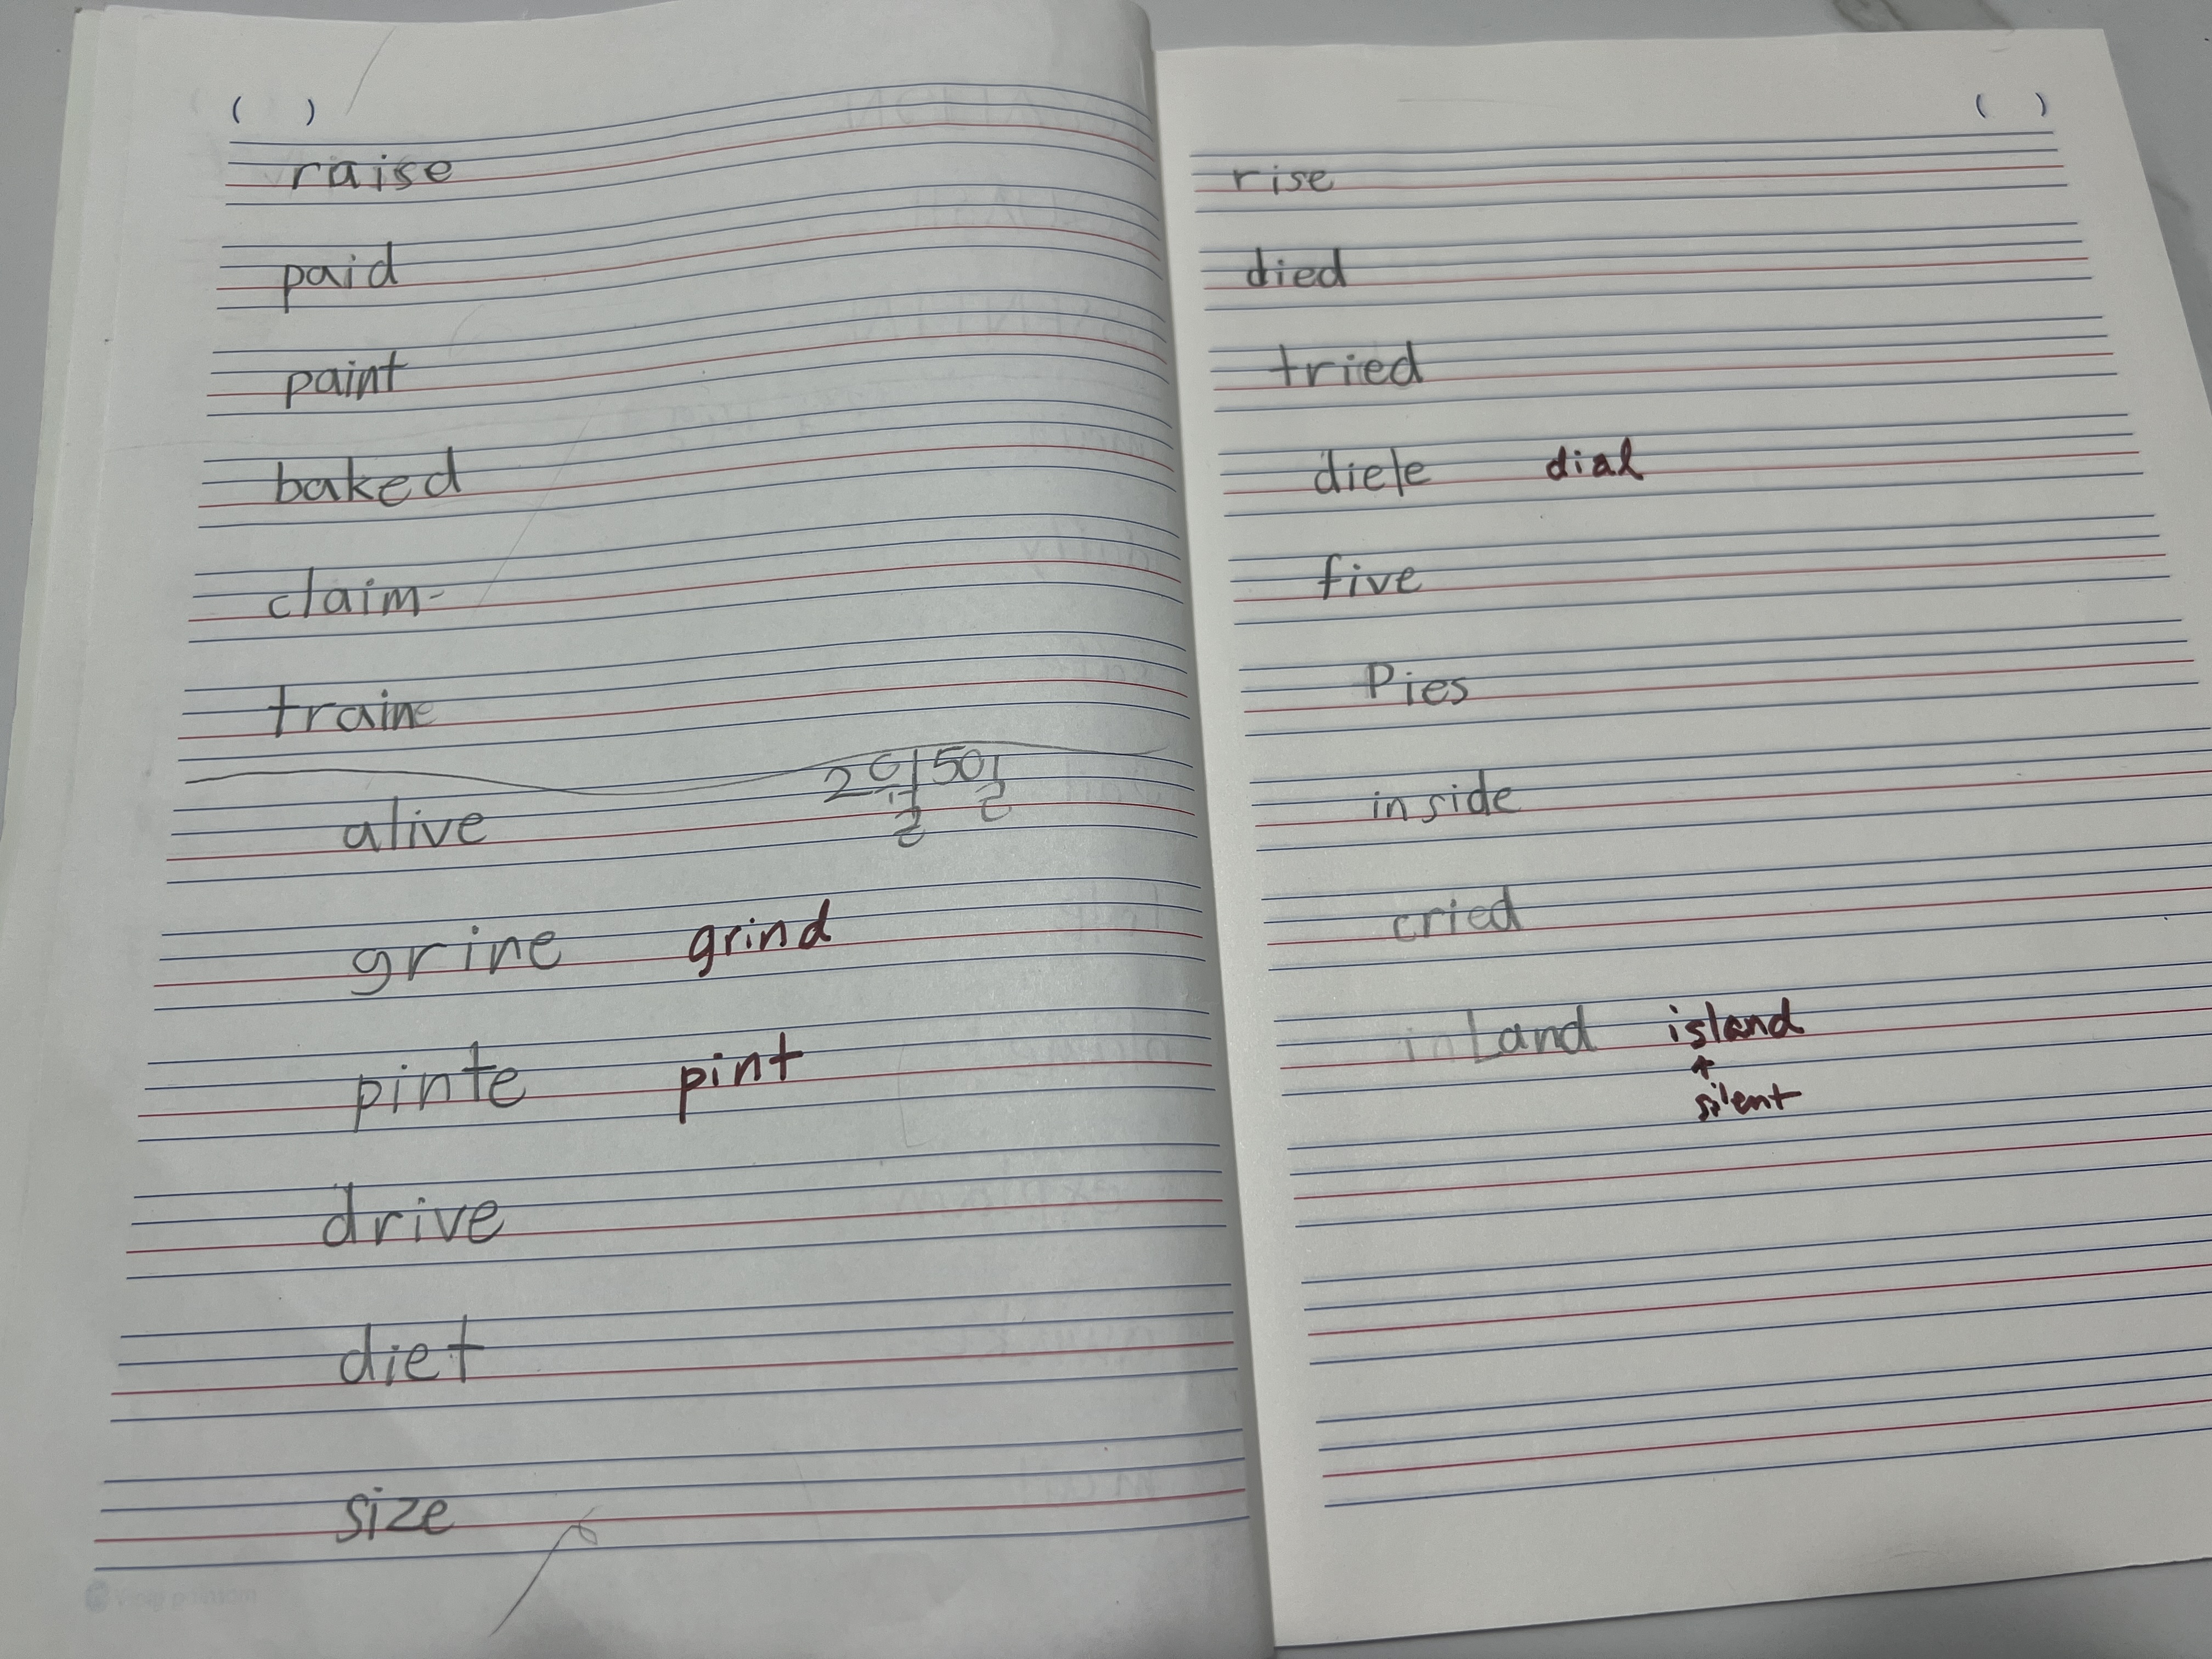 ( )
raise
paid
paint
baked
claim-
train
alive
grine grind
pinte pint
drive
diet
size
( )
rise
died
tried
diele dial
five
Pies
inside
cried
inLand island
silent